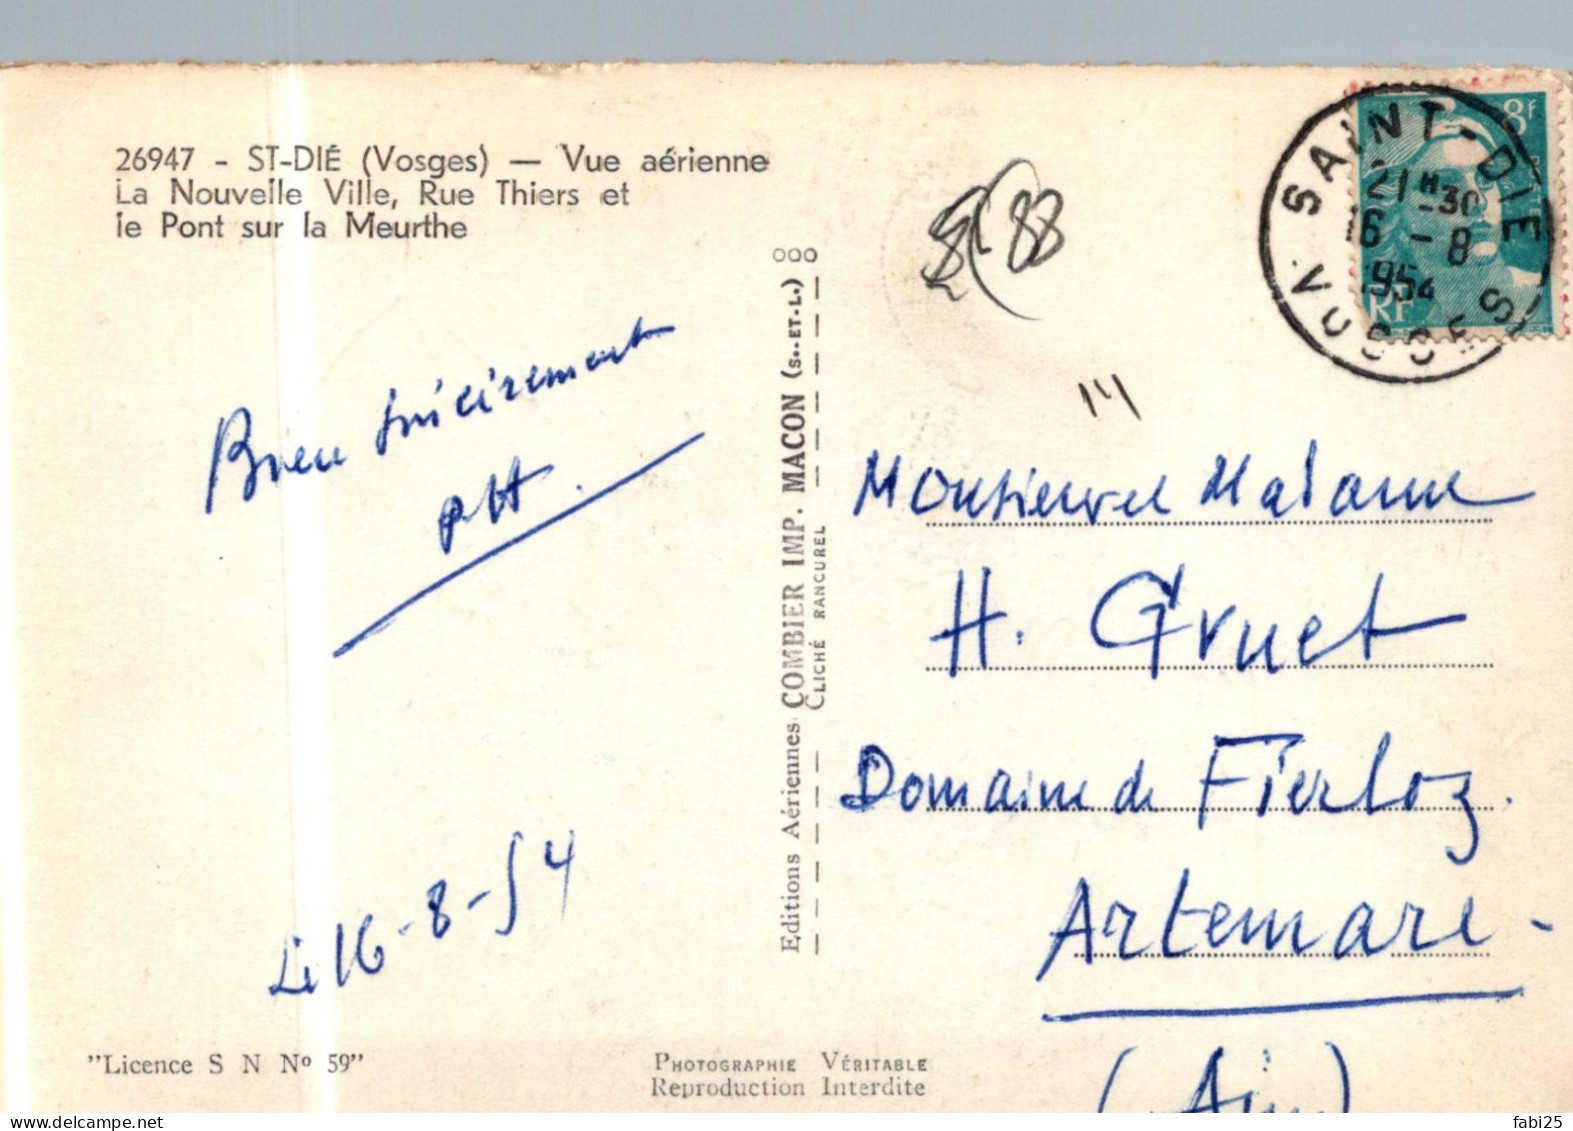 26947 - ST-DIÉ (Vosges) — Vue aérienne
La Nouvelle Ville, Rue Thiers et
le Pont sur la Meurthe
Bien sincèrement
Le 16-8-54
"Licence S N Nº 59"
Editions Aériennes COMBIER IMP. MACON (S.-ET-L.)
CLICHÉ RANCUREL
PHOTOGRAPHIE VÉRITABLE
Reproduction Interdite
8F
POSTES
RF
SAINT-DIE
21 H 30
16 - 8
1954
VOSGES
88
Monsieur et Madame
H. Gruet
Domaine de Fierloz.
Artemare -
(Ain)
fabi25